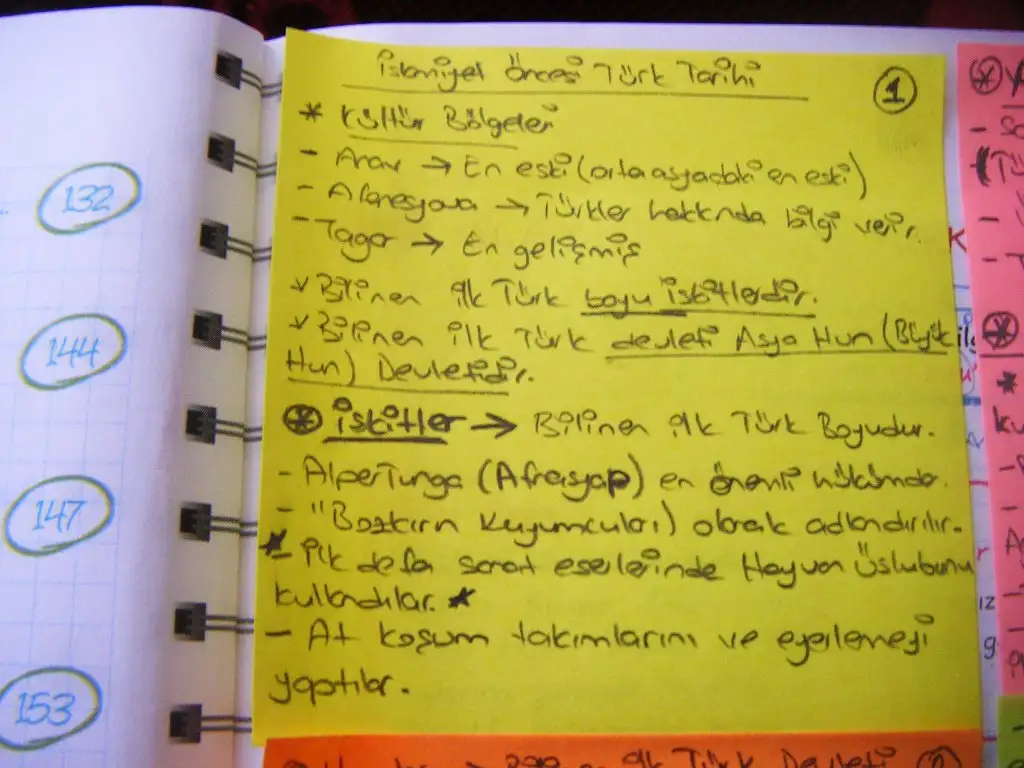 İslamiyet Öncesi Türk Tarihi
1
* Kültür Bölgeleri
- Anav → En eski (orta asyadaki en eski)
- Afanesyava → Türkler hakkında bilgi verir.
- Tagar → En gelişmiş
* Bilinen ilk Türk boyu iskitlerdir.
* Bilinen ilk Türk devleti Asya Hun (Büyük
Hun) Devletidir.
* İskitler → Bilinen ilk Türk Boyudur.
- Alper Tunga (Afrasyap) en önemli hükümdar.
- "Bozkırın Kuyumcuları) olarak adlandırılır.
* - İlk defa sanat eserlerinde Hayvan Üslubunu
kullandılar. *
- At koşum takımlarını ve eyerlemeyi
yaptılar.
132
144
147
153
ilk Türk Devleti